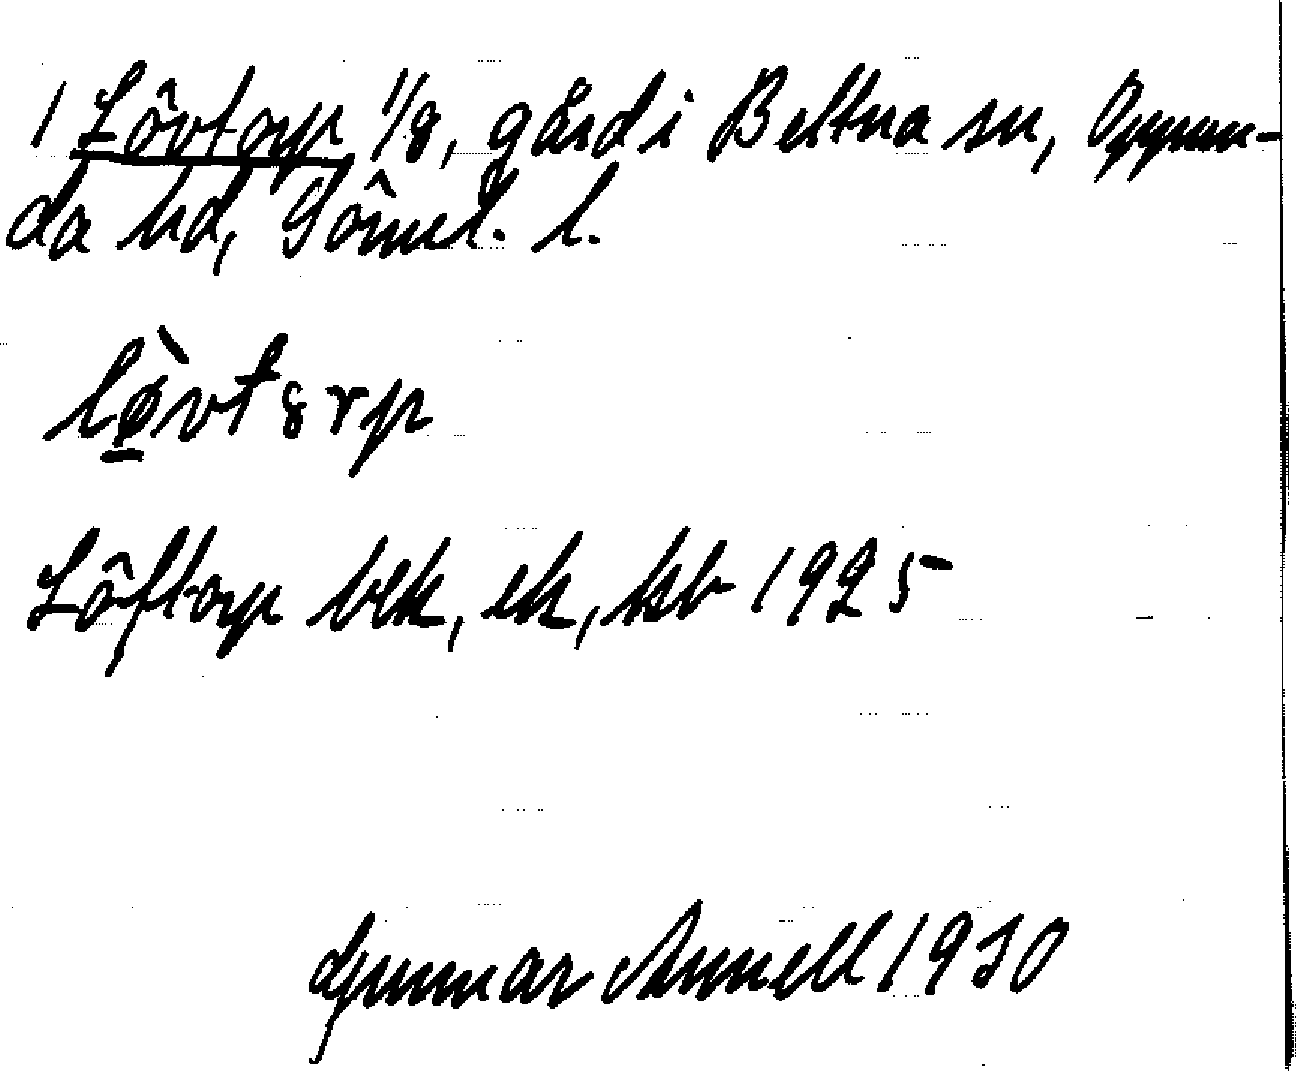 1 Lövtorp 1/8, gård i Bettna sn, Oppun-
da hd, Söml. l.
lø̀vtȣrp
Löftorp blk, ek, kb 1925
Gunnar Annell 1930